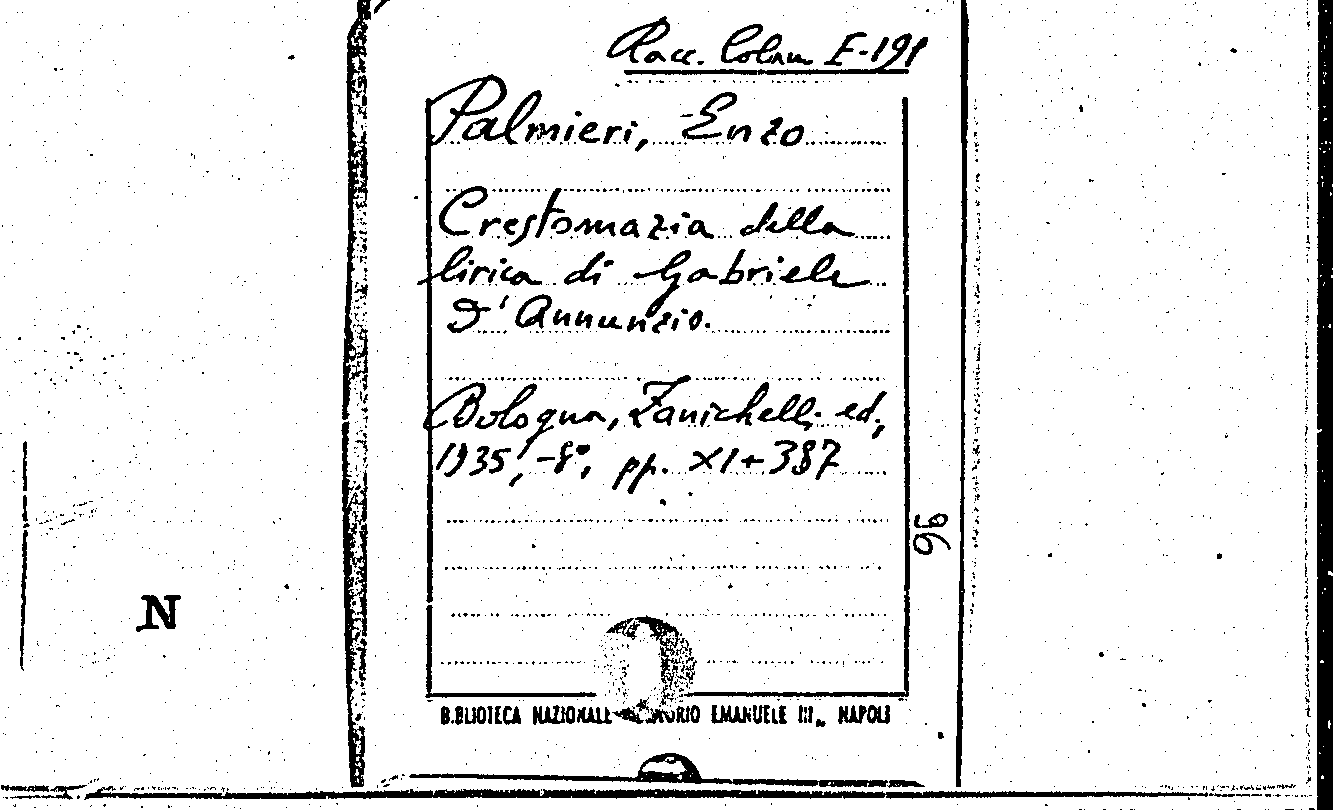 Racc. Colam E-191
Palmieri, Enzo
Crestomazia della
lirica di Gabriele
D'Annunzio.
Bologna, Zanichelli ed,
1935, -8°, pp. XI+387
96
N
BIBLIOTECA NAZIONALE EMANUELE III„ NAPOLI